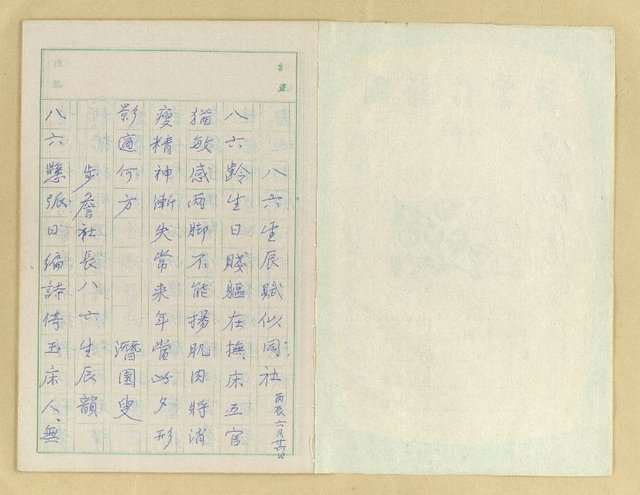 八六生辰賦似同社 丙辰六月廿六日
八六齡生日賤軀在撫床五官
猶敏感兩脚不能揚肌肉將消
瘦精神漸失常来年當此夕形
影適何方 潛園叟
步詹社長八六生辰韻
八六懸弧日編詩倚玉床人、無